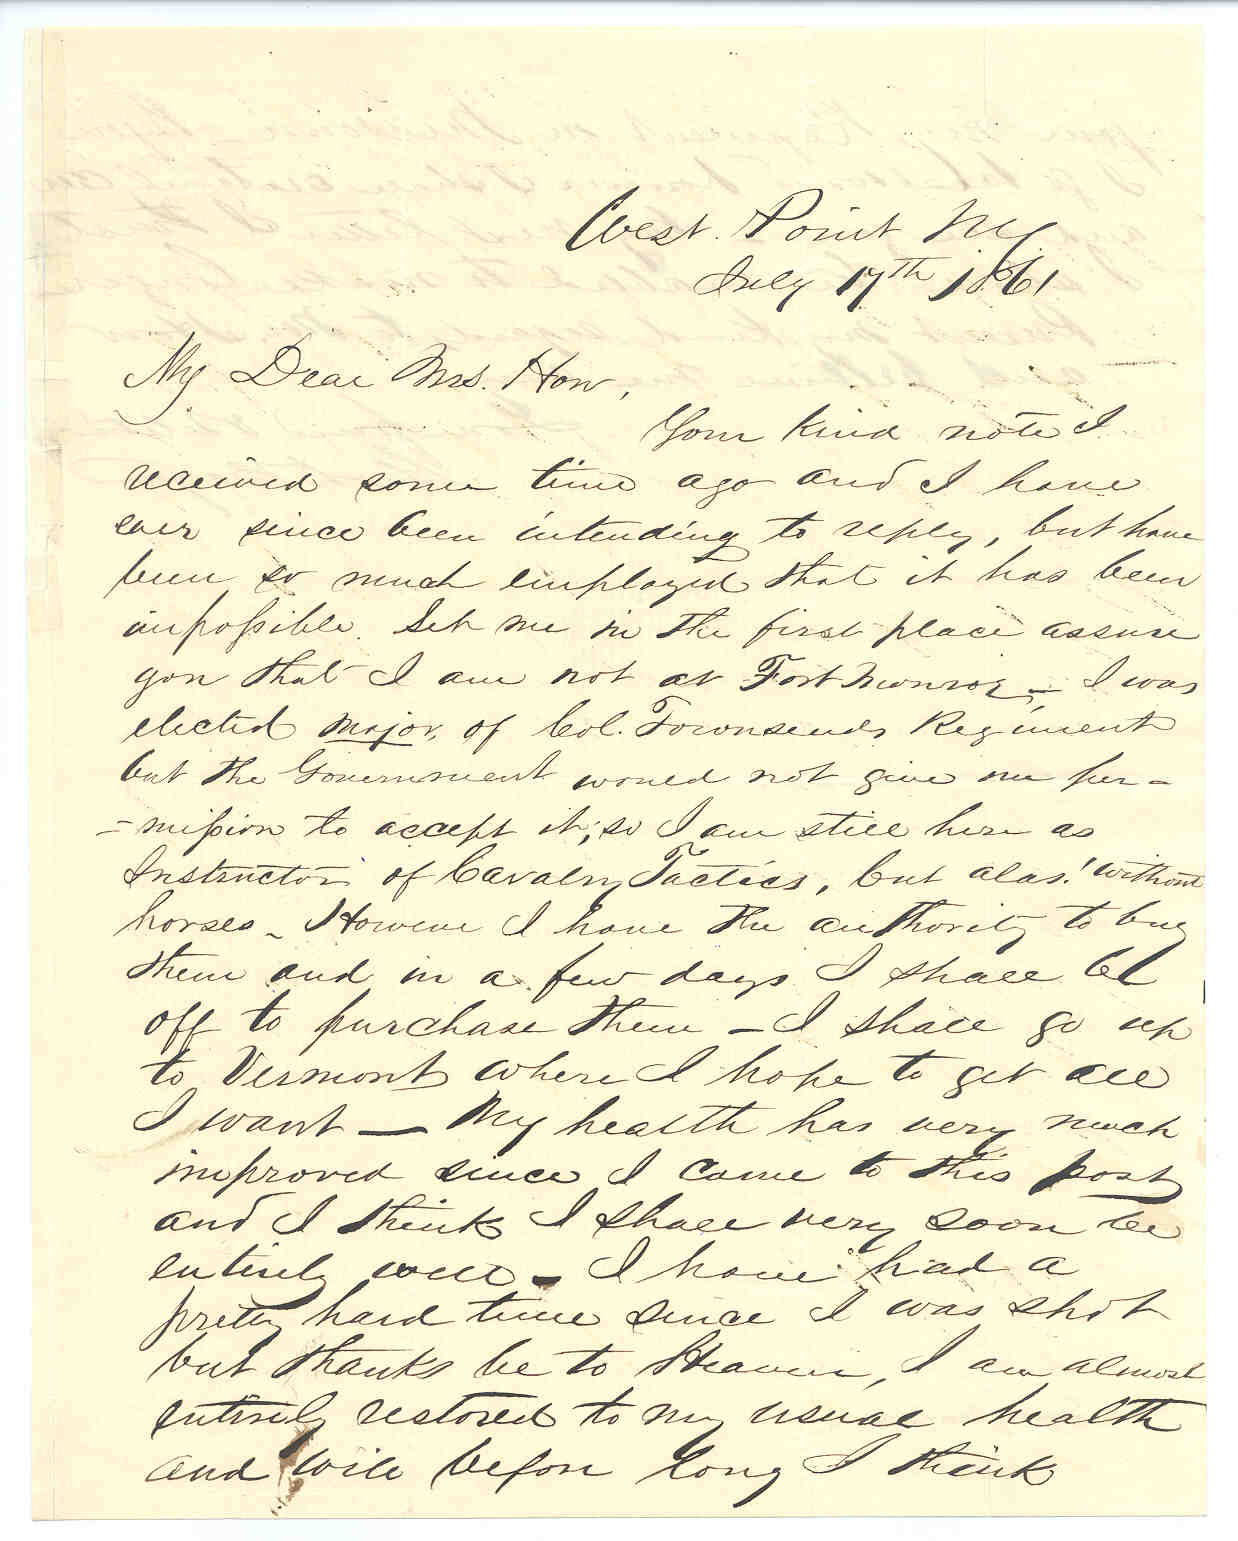 West. Point NY
July 17th 1861
My Dear Mrs. How,
Your kind note I
received some time ago and I have
ever since been intending to reply, but have
been so much employed that it has been
impossible. Let me in the first place assure
you that I am not at Fort Monroe, – I was
elected Major, of Col. Townsends Regiment
but the Government would not give me per-
-mission to accept it; so I am still here as
Instructor of Cavalry Tactics, but alas! without
horses – However I have the authority to buy
them and in a few days I shall be
off to purchase them – I shall go up
to Vermont where I hope to get all
I want – My health has very much
improved since I came to this post
and I think I shall very soon be
entirely well – I have had a
pretty hard time since I was shot
but thanks be to Heaven, I am almost
entirely restored to my usual health
and will before long I think